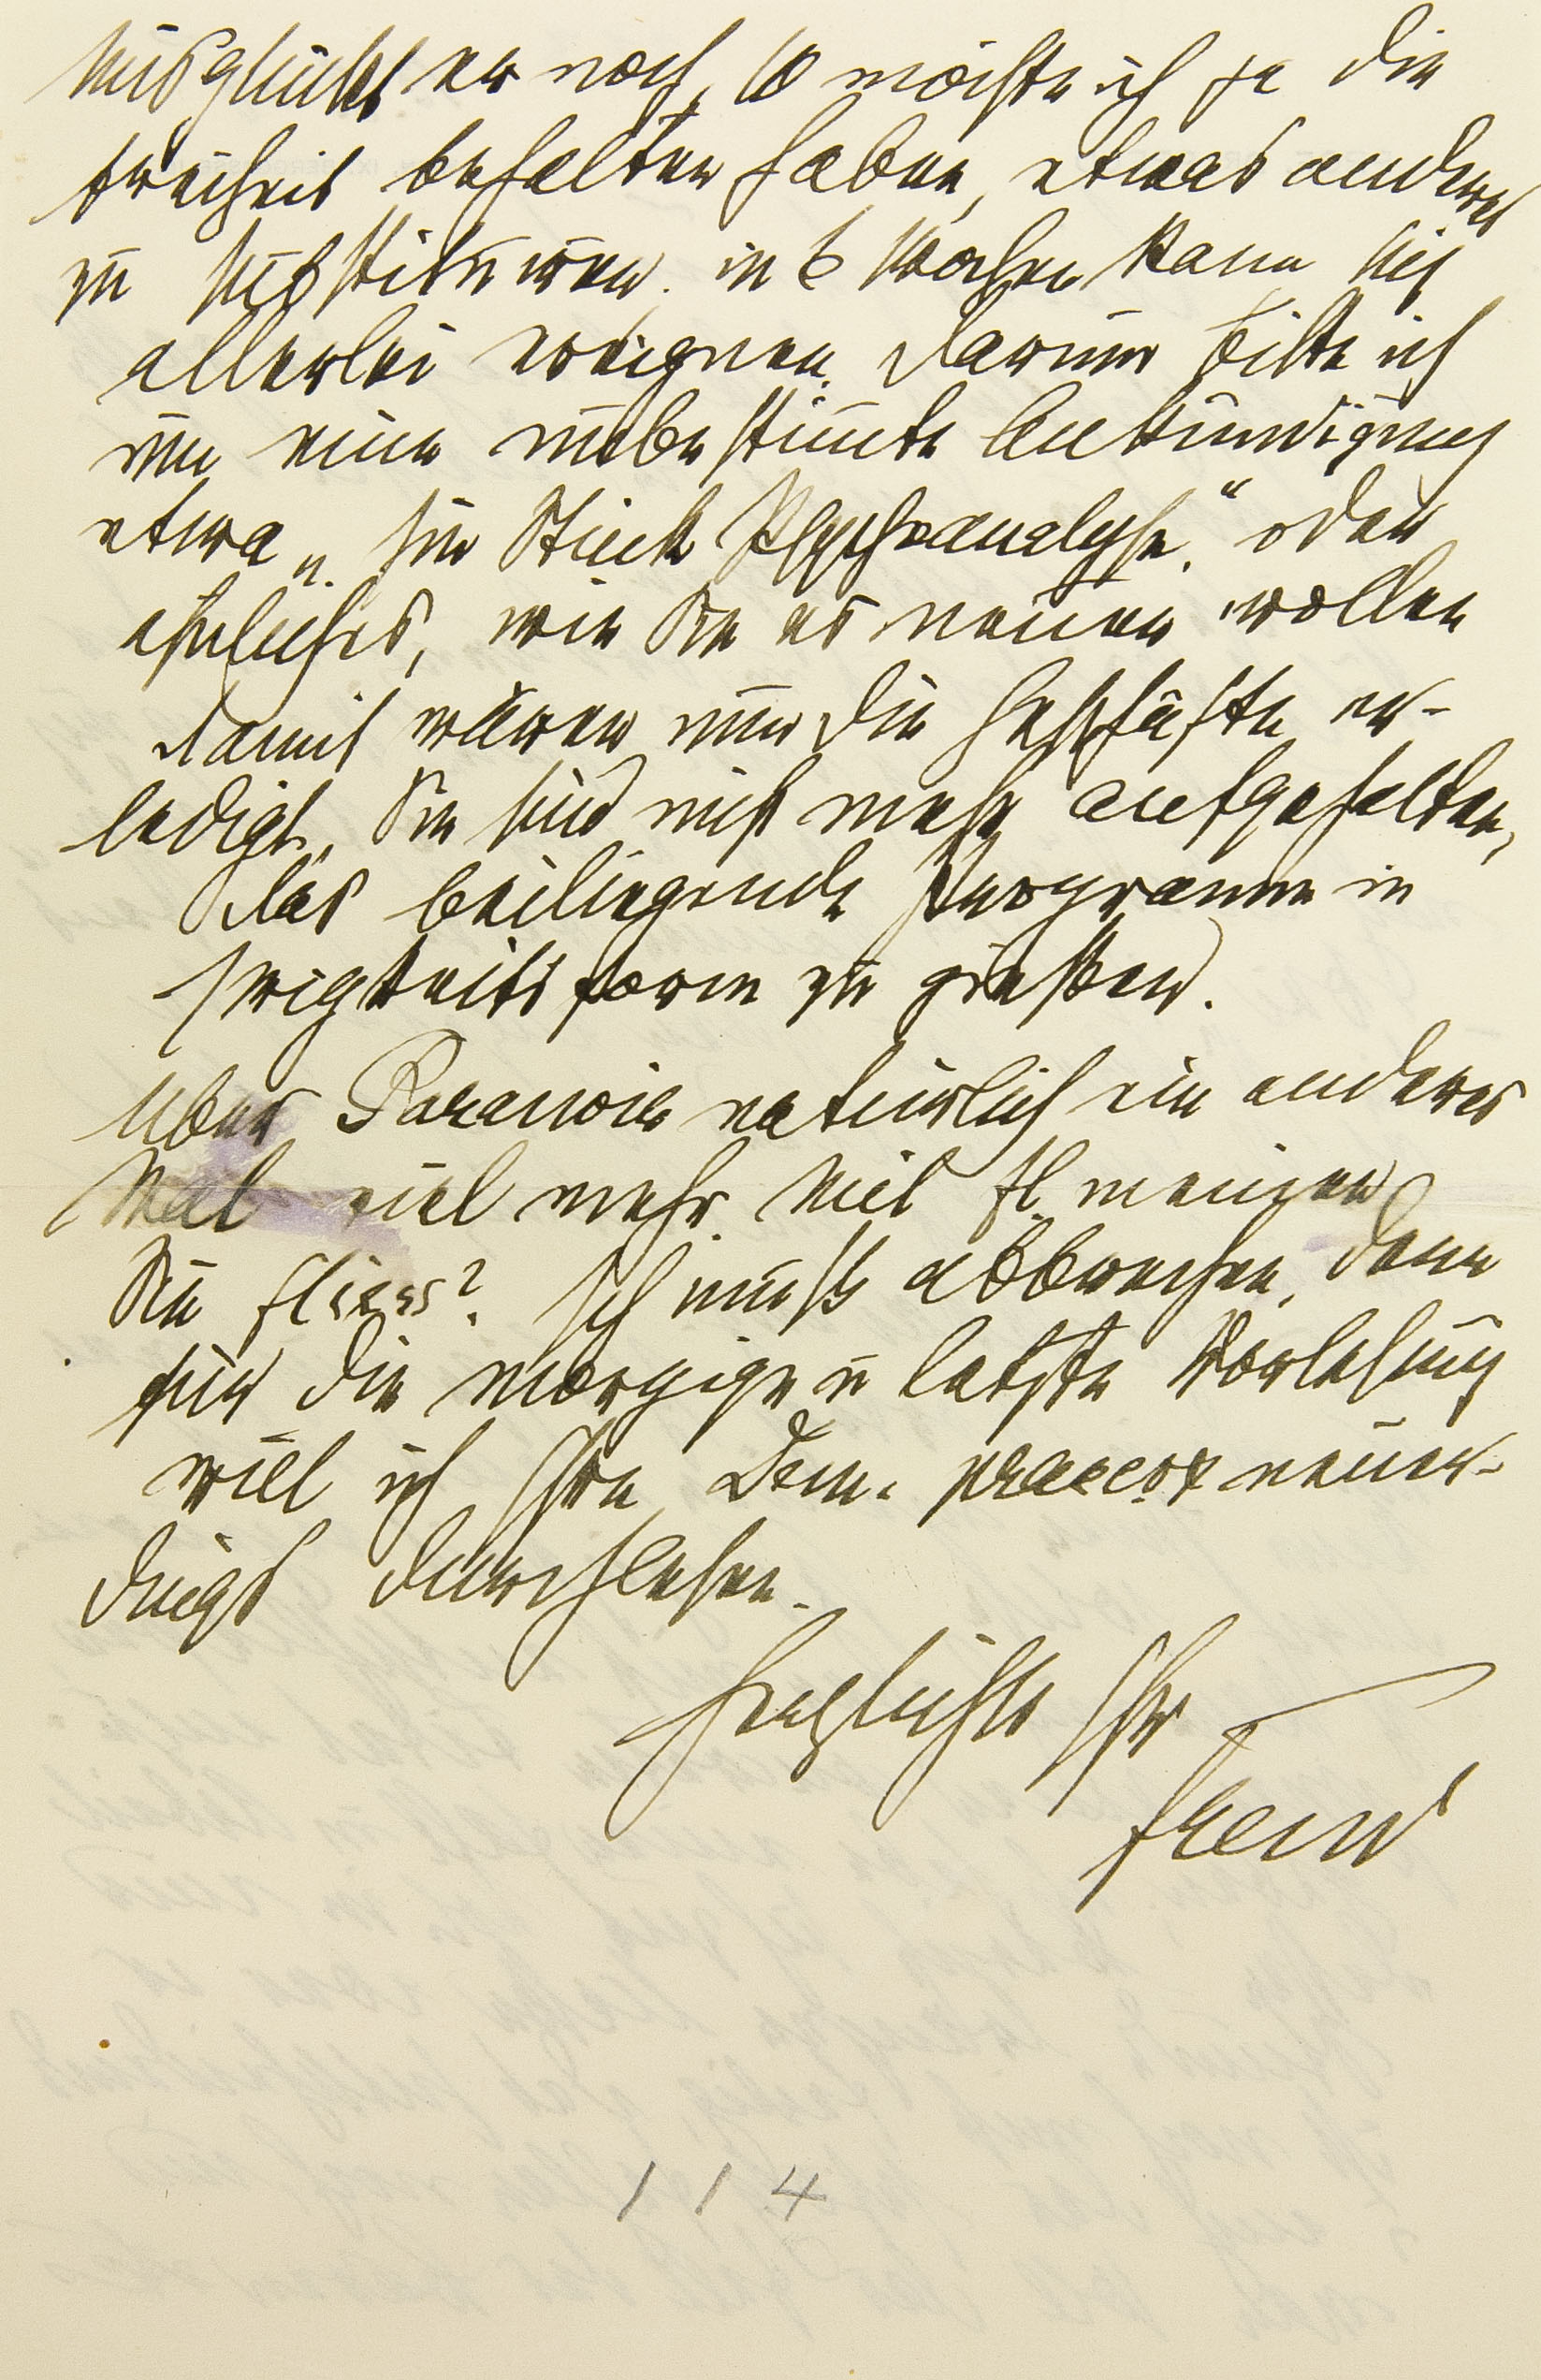 Misglückt er noch, so möchte ich ja die
Freiheit behalten haben, etwas anderes
zu substituiren. in 6 Wochen kann sich
allerlei ereignen. Darum bitte ich
um eine unbestimmte Ankündigung
etwa „Ein Stück Psychoanalyse.“ oder
ähnliches, wie Sie es nennen wollen
Damit wären nun die Geschäfte er-
ledigt. Sie sind nicht mehr aufgehalten,
das beiliegende Programm in
Ewigkeitsform zu gießen.
Über Paranoia natürlich ein anderes
Mal viel mehr. Mit Fl. meinen
Sie Fliess? Ich muß abbrechen, denn
für die morgige u letzte Vorlesung
will ich Ihre Dem. praecox neuer-
dings durchlesen.
Herzlichst Ihr
Freud
114